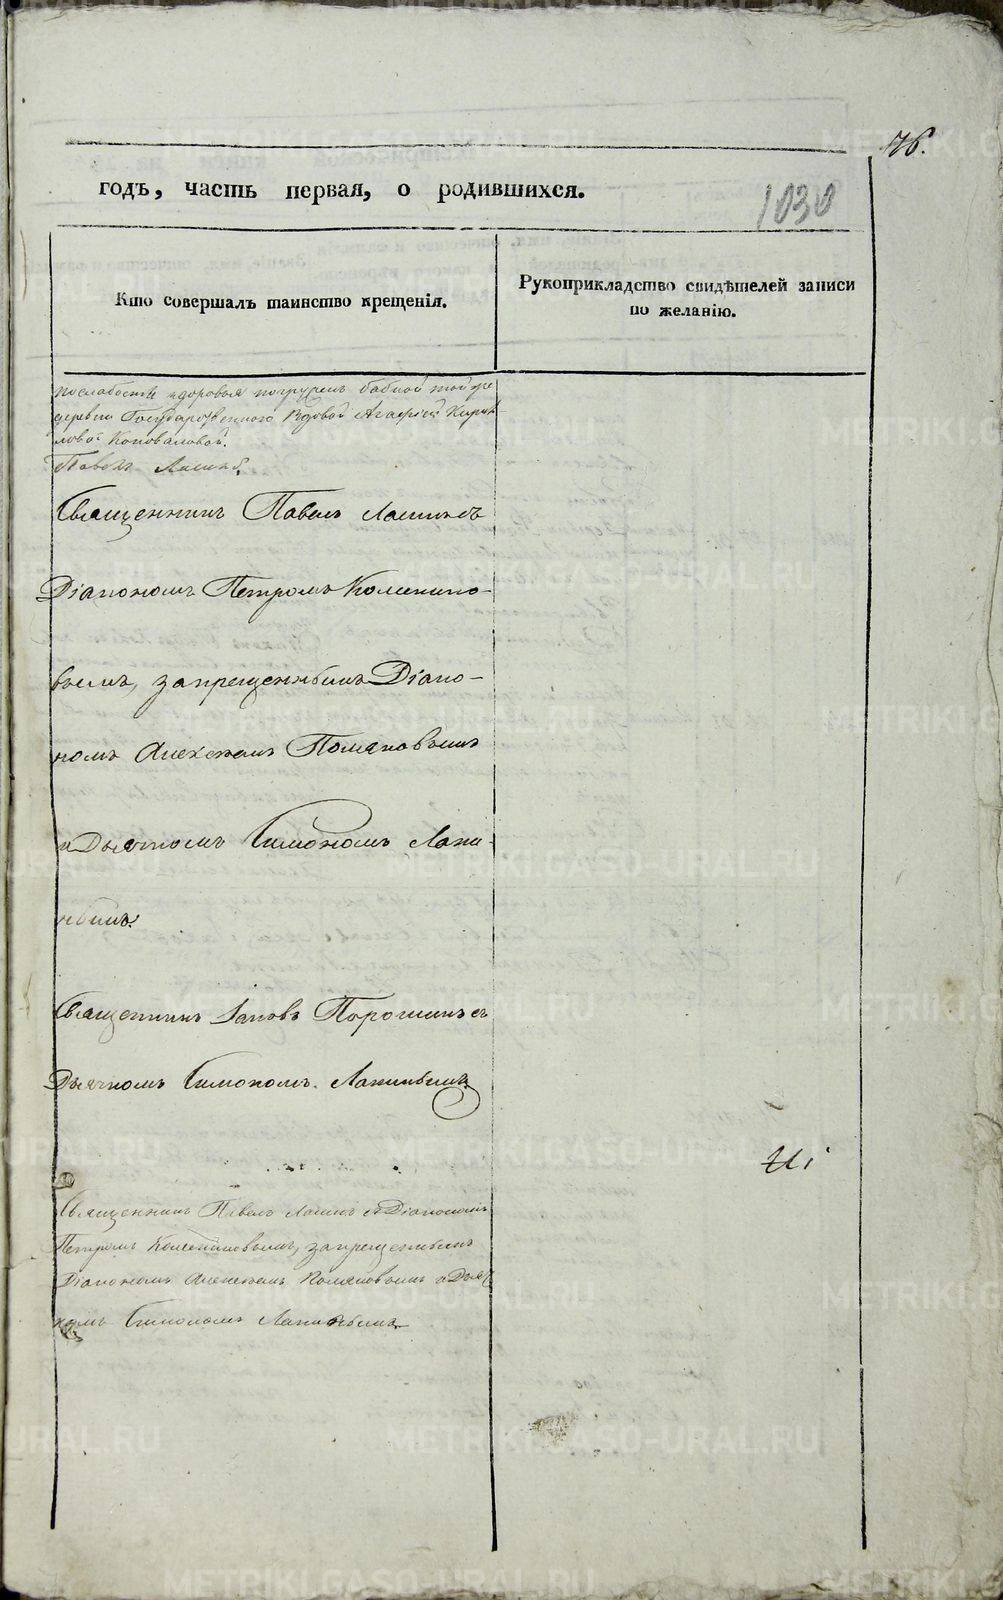 76.
годъ, часть первая, о родившихся.
1030
Кто совершалъ таинство крещенія.
Рукоприкладство свидѣтелей записи
по желанію.
по слабости здоровья погружен бабкой той же
деревни Государственного Вдовой Агафіей Кирил
ловой Коноваловой.
Павелъ
Священникъ Павелъ Ляпинъ съ
Діакономъ Петромъ
вымъ, запрещеннымъ Діако-
номъ Алексѣемъ Помяловымъ
и Дьячкомъ Симономъ Лапи-
нымъ.
Священникъ Іаковъ Порошинъ съ
Дьячкомъ Симономъ Лапинымъ
Священникъ Павелъ съ Діакономъ
Петромъ запрещеннымъ
Діакономъ Алексѣемъ Помяловымъ и Дьяч
комъ Симономъ Лапинымъ
METRIKI.GASO-URAL.RU